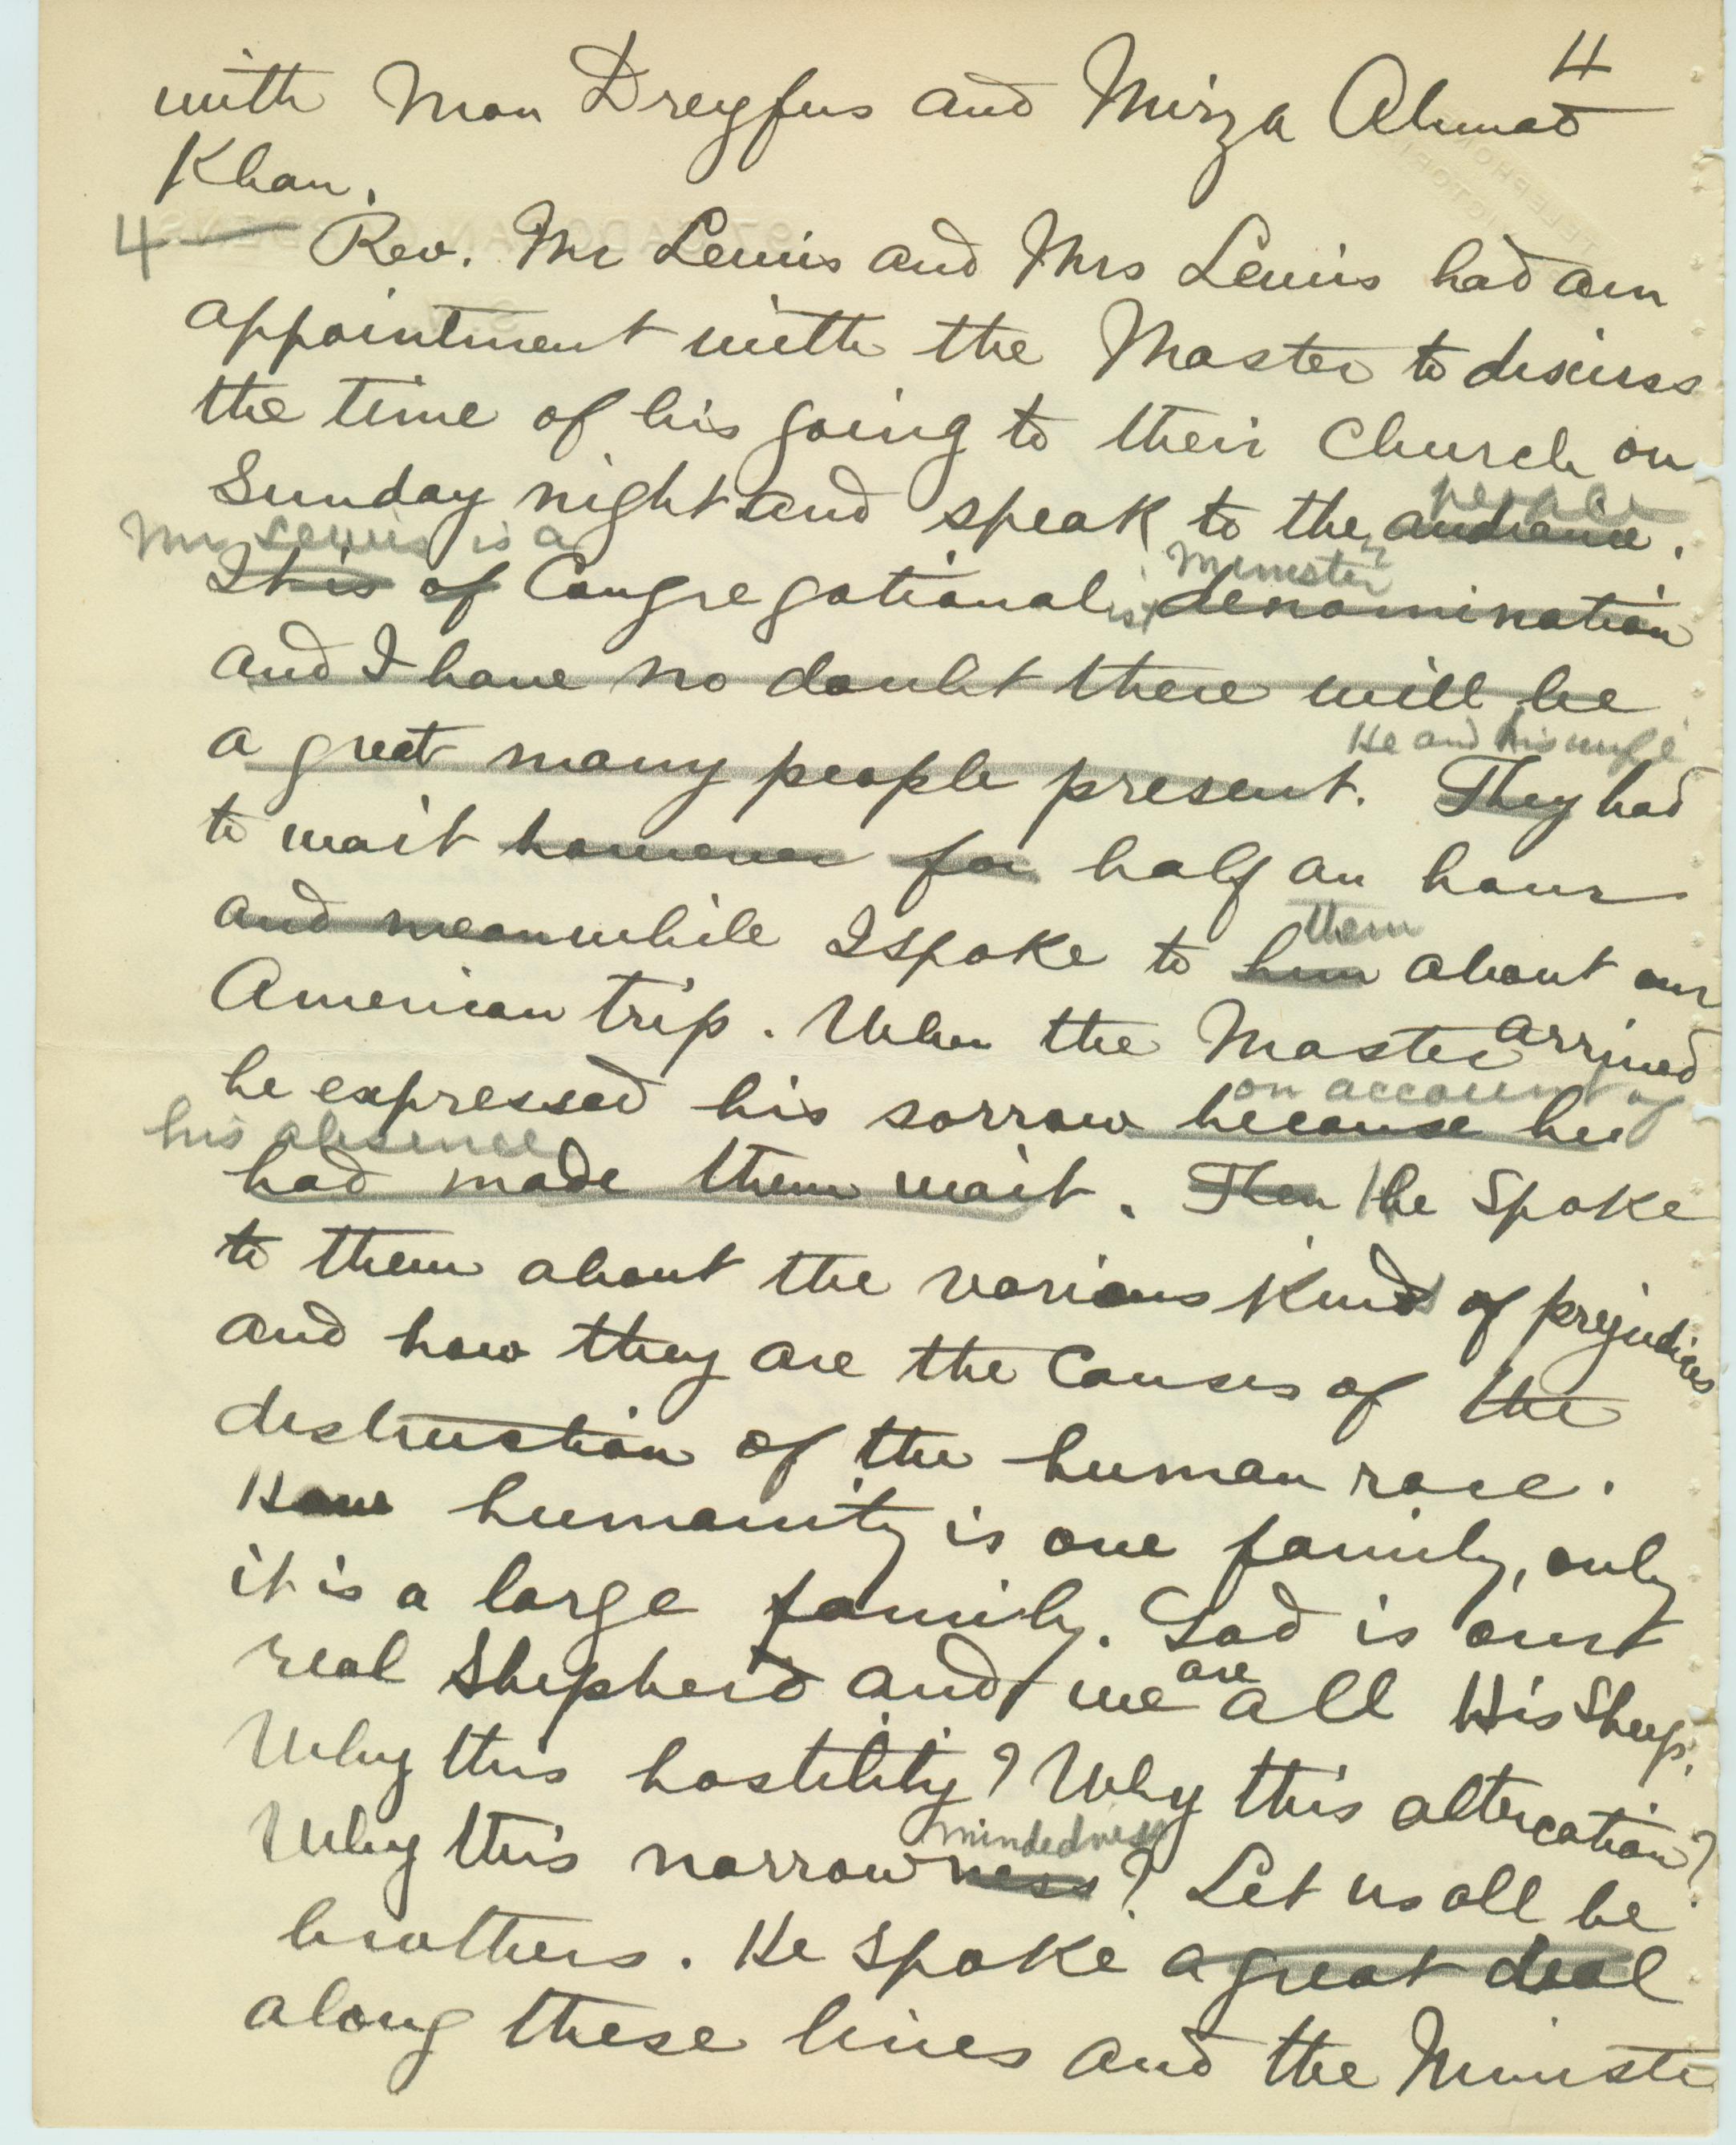 4
with Mon Dreyfus and Mirza Ahmad
Khan.
4 — Rev. Mr Lewis and Mrs Lewis had an
appointment with the Master to discuss
the time of his going to their Church on
Sunday night and speak to the audiance.
people
Mr Lewis is a
It is of Congregationalist denomination
Minister
and I have no doubt there will be
a great many people present. They had
He and his wife
to wait however for half an hour
and meanwhile I spoke to him about our
them
American trip. When the Master arrived
he expressed his sorrow because he
on account of
his absence
had made them wait. Then He spoke
to them about the various kinds of prejudices
and how they are the causes of the
destruction of the human race.
How humanity is one family, only
it is a large family. God is our
real Shepherd and we are all His Sheep.
Why this hostility? Why this altercation?
Why this narrowness? Let us all be
mindedness
brothers. He spoke a great deal
along these lines and the Ministe